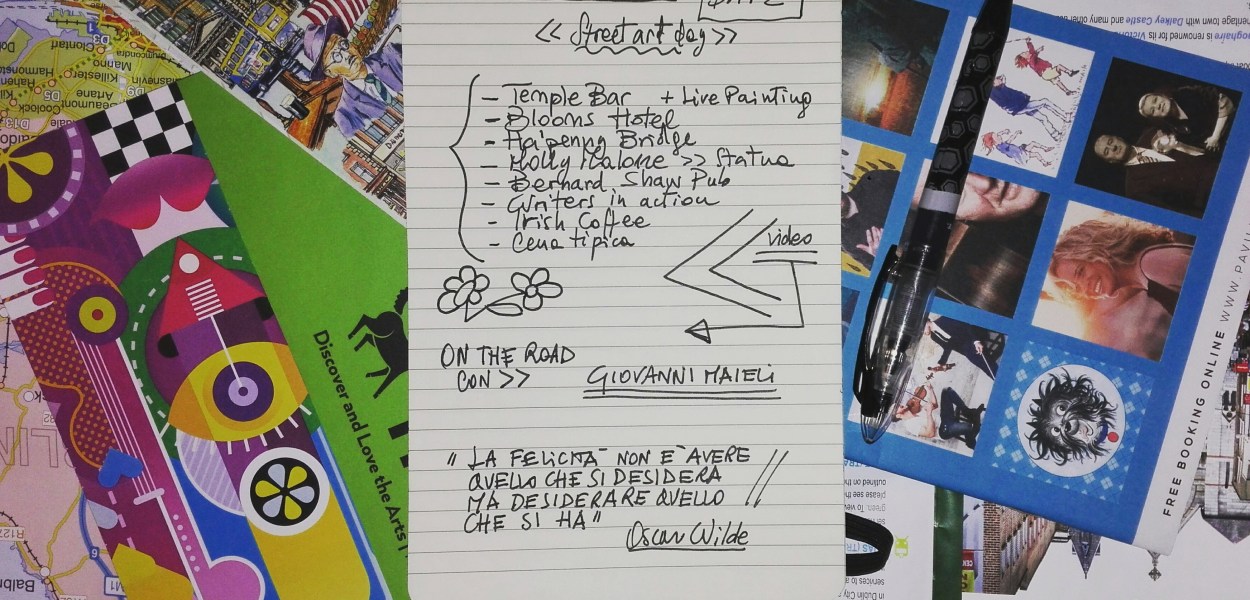 << Street art day >>
- Temple Bar + Live Painting
- Blooms Hotel
- Ha'penny Bridge
- Molly Malone >> Statua
- Bernard Shaw Pub
- Writers in action
- Irish Coffee
- Cena tipica
video
ON THE ROAD
CON >> GIOVANNI MAIELI
" LA FELICITÀ NON E' AVERE
QUELLO CHE SI DESIDERA
MA DESIDERARE QUELLO
CHE SI HA "
Oscar Wilde
Discover and Love the Arts
FREE BOOKING ONLINE WWW.PAVI
Clontarf
Marino
Killester
Artane
Beaumont
Coolock
D5
D9
D3
M1
6